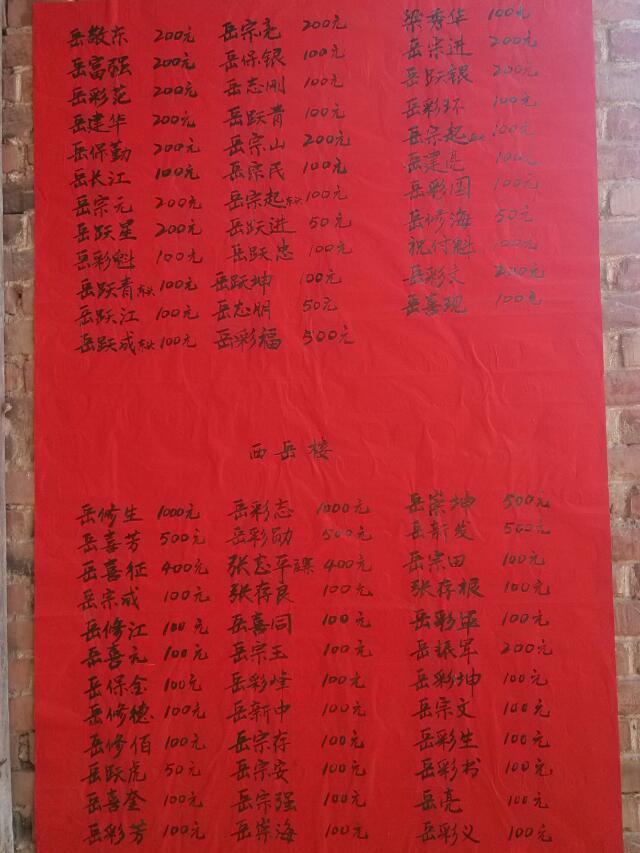 岳敬东 200元 岳宗尧 200元 梁秀华 100元
岳富强 200元 岳保银 100元 岳宗进 200元
岳彩范 200元 岳志刚 100元 岳跃银 200元
岳建华 200元 岳跃青 100元 岳彩环 100元
岳保勤 200元 岳宗山 200元 岳宗起 100元
岳长江 100元 岳宗民 100元 岳建亮 100元
岳宗元 200元 岳宗起东头 100元 岳彩国 100元
岳跃星 200元 岳跃进 50元 岳修海 50元
岳彩魁 100元 岳跃忠 100元 祝付魁 100元
岳跃青东头 100元 岳跃坤 100元 岳彩文 200元
岳跃江 100元 岳志明 50元 岳喜现 100元
岳跃成东头 100元 岳彩福 500元
西岳楼
岳修生 1000元 岳彩志 1000元 岳崇坤 500元
岳喜芳 500元 岳彩勋 500元 岳新发 500元
岳喜征 400元 张志平 400元 岳宗田 100元
岳宗成 100元 张存良 100元 张存根 100元
岳修江 100元 岳喜同 100元 岳彩军 100元
岳喜元 100元 岳宗玉 100元 岳振军 200元
岳保金 100元 岳彩峰 100元 岳彩坤 100元
岳修德 100元 岳新中 100元 岳宗文 100元
岳修佰 100元 岳宗存 100元 岳彩生 100元
岳跃虎 50元 岳宗安 100元 岳彩书 100元
岳喜奎 100元 岳宗强 100元 岳亮 100元
岳彩芳 100元 岳崇海 100元 岳彩义 100元